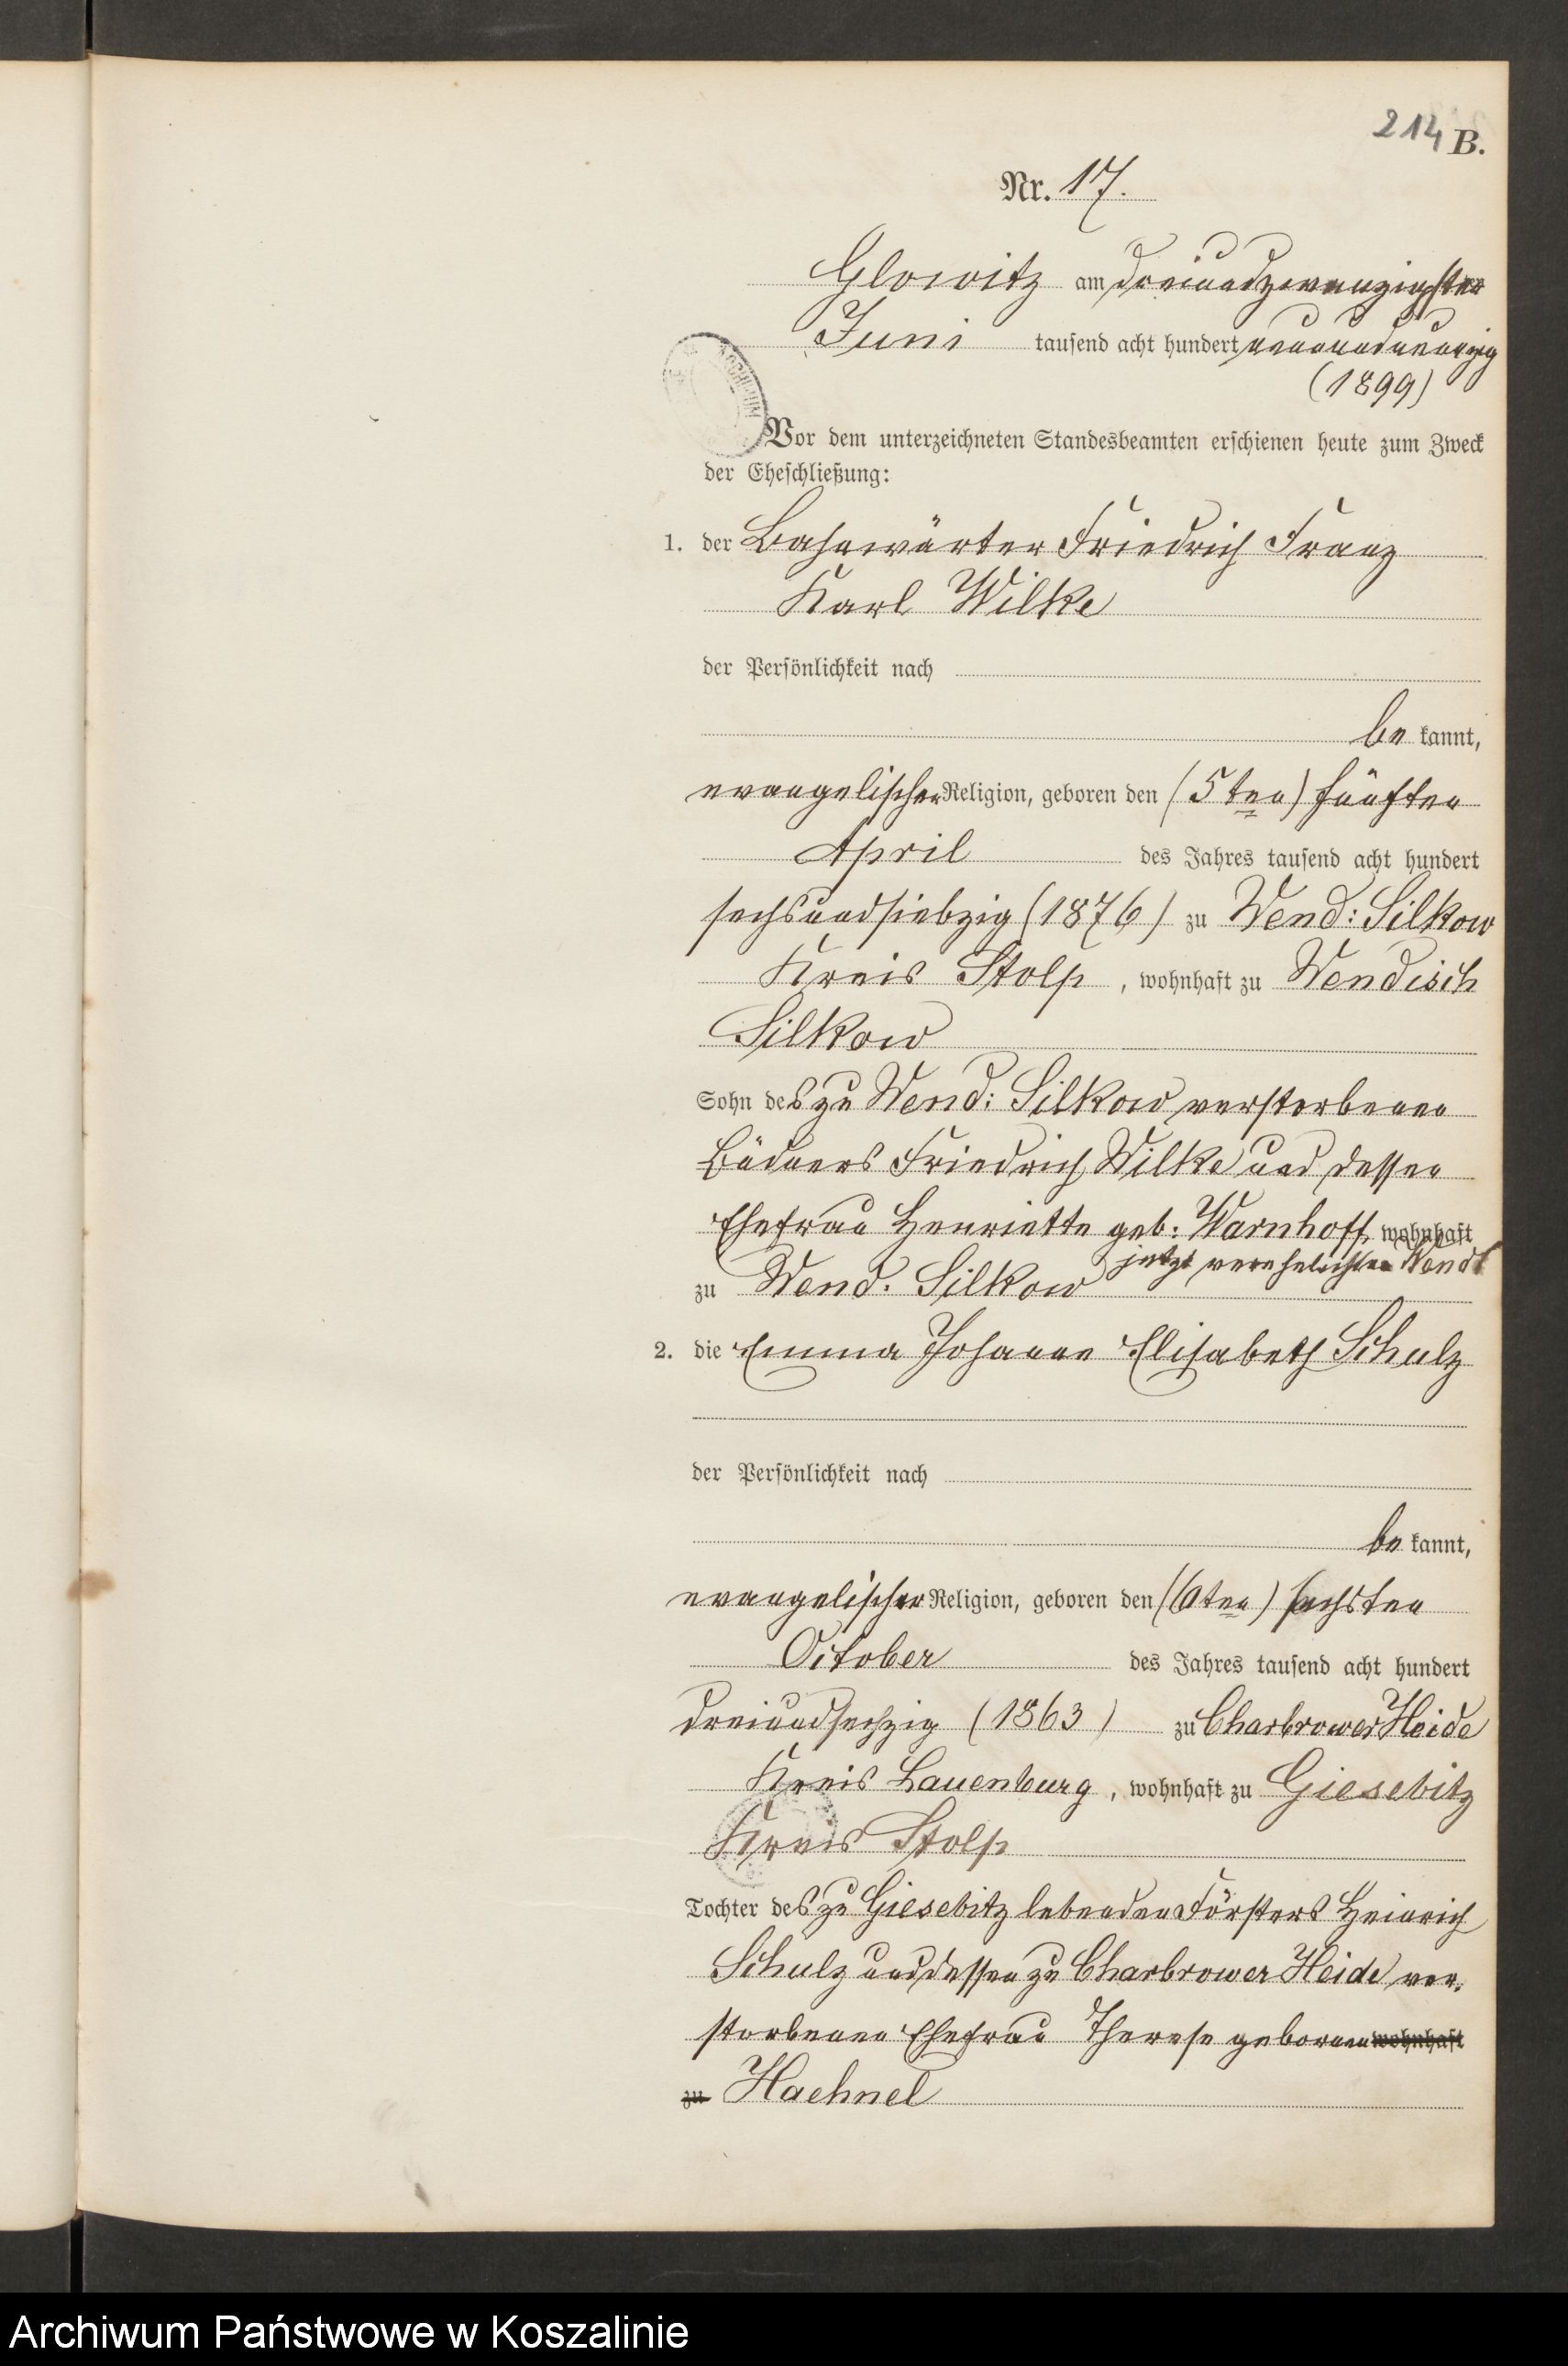 214 B.
Nr. 17.
Glowitz am dreiundzwanzigsten
Juni tausend acht hundert neunundneunzig
(1899)
Vor dem unterzeichneten Standesbeamten erschienen heute zum Zweck
der Eheschließung:
1. der Bahnwärter Friedrich Franz
Karl Wilke
der Persönlichkeit nach
be kannt,
evangelischer Religion, geboren den (5ten) fünften
April des Jahres tausend acht hundert
sechsundsiebzig (1876) zu Wend: Silkow
Kreis Stolp, wohnhaft zu Wendisch
Silkow
Sohn des zu Wend: Silkow verstorbenen
Büdners Friedrich Wilke und dessen
Ehefrau Henriette geb: Warnhoff, wohnhaft
jetzt verehelichten Wendt
zu Wend. Silkow
2. die Emma Johanne Elisabeth Schulz
der Persönlichkeit nach
be kannt,
evangelischer Religion, geboren den (6ten) sechsten
October des Jahres tausend acht hundert
dreiundsechzig (1863) zu Charbrower Heide
Kreis Lauenburg, wohnhaft zu Giesebitz
Kreis Stolp
Tochter des zu Giesebitz lebenden Försters Heinrich
Schulz und dessen zu Charbrower Heide ver-
storbenen Ehefrau Therese geborenen wohnhaft
zu Haehnel
Archiwum Państwowe w Koszalinie